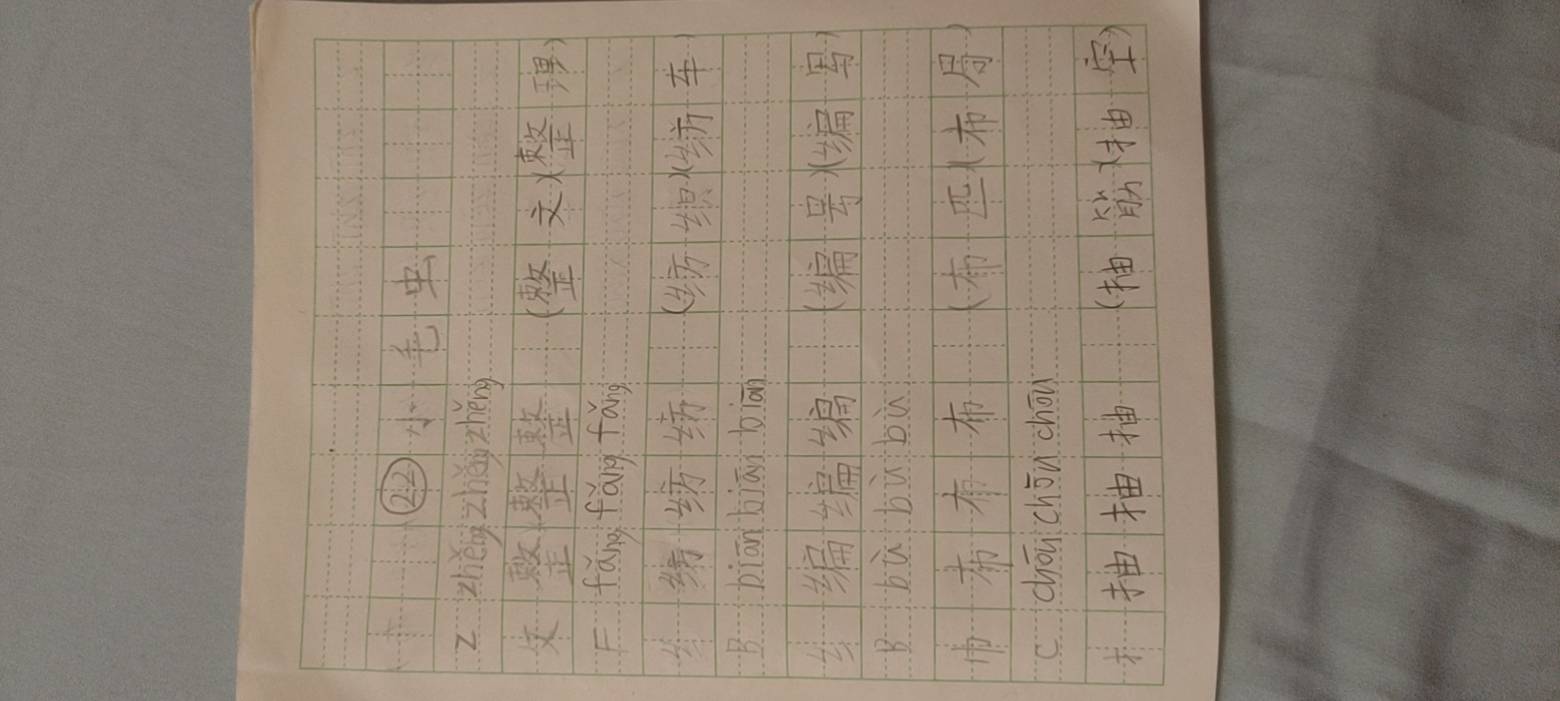 22 小毛虫
Z zhěng zhěng zhěng
攵 整 整 整 (整 文)(整 理)
F fǎng fǎng fǎng
纟 纺 纺 纺 (纺 织)(纺 车)
B biān biān biān
纟 编 编 编 (编 号)(编 写)
B bù bù bù
巾 布 布 布 (布 匹)(布 局)
C chōu chōu chōu
扌 抽 抽 抽 (抽 筋)(抽 空)